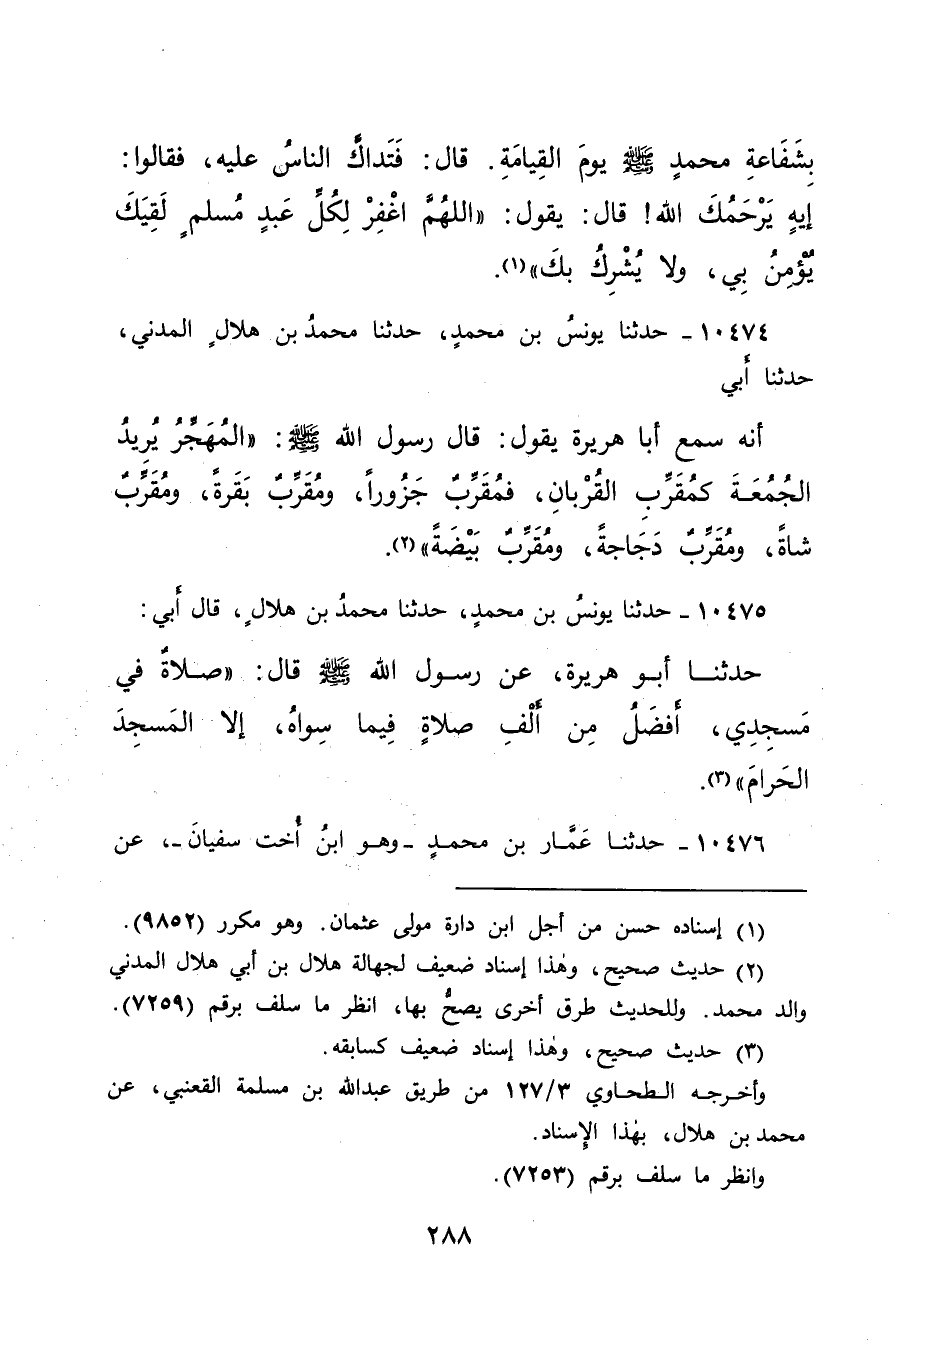 بِشَفَاعةِ محمدٍ ﷺ يومَ القِيامَةِ. قال: فَتَداكَّ الناسُ عليه، فقالوا:
إيهٍ يَرْحَمُكَ الله! قال: يقول: «اللهُمَّ اغْفِرْ لِكُلِّ عَبدٍ مُسلمٍ لَقِيَكَ
يُؤْمِنُ بِي، ولا يُشْرِكُ بكَ»(١).
١٠٤٧٤ ـ حدثنا يونسُ بن محمدٍ، حدثنا محمدُ بن هلالٍ المدني،
حدثنا أَبي
أنه سمع أبا هريرة يقول: قال رسول الله ﷺ: «المُهَجِّرُ يُرِيدُ
الجُمُعَـةَ كمُقَرِّبِ القُرْبانِ، فمُقَرِّبٌ جَزُوراً، ومُقَرِّبٌ بَقَرةً، ومُقَرِّبٌ
شاةً، ومُقَرِّبٌ دَجَاجةً، ومُقَرِّبٌ بَيْضَةً»(٢).
١٠٤٧٥ ـ حدثنا يونسُ بن محمدٍ، حدثنا محمدُ بن هلالٍ، قال أَبي:
حدثنـــا أبــو هريرة، عن رســول الله ﷺ قال: «صــلاةٌ في
مَسجِدِي، أَفضَلُ مِن أَلْفِ صلاةٍ فِيما سِواهُ، إلا المَسجِدَ
الحَرامَ»(٣).
١٠٤٧٦ ـ حدثنـا عَمَّار بن محمـدٍ ـ وهـو ابنُ أُخت سفيانَ ـ، عن
(١) إسناده حسن من أجل ابن دارة مولى عثمان. وهو مكرر (٩٨٥٢).
(٢) حديث صحيح، وهٰذا إسناد ضعيف لجهالة هلال بن أبي هلال المدني
والد محمد. وللحديث طرق أخرى يصحُّ بها، انظر ما سلف برقم (٧٢٥٩).
(٣) حديث صحيح، وهٰذا إسناد ضعيف كسابقه.
وأخـرجـه الـطحـاوي ١٢٧/٣ من طريق عبدالله بن مسلمة القعنبي، عن
محمد بن هلال، بهٰذا الإِسناد.
وانظر ما سلف برقم (٧٢٥٣).
٢٨٨